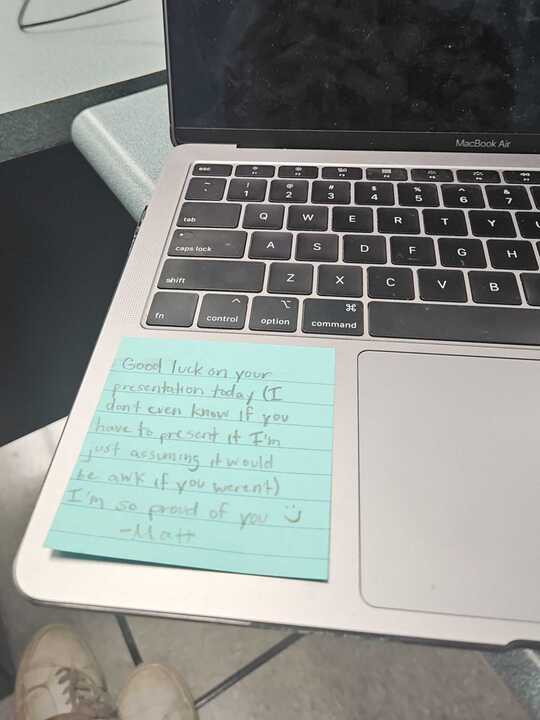 MacBook Air
esc
~ ` ! 1 @ 2 # 3 $ 4 % 5 ^ 6 & 7
tab Q W E R T Y U
caps lock A S D F G H
shift Z X C V B
fn control option command
Good luck on your
presentation today (I
dont even know if you
have to present it I'm
just assuming it would
be awk if you werent)
I'm so proud of you :)
-Matt